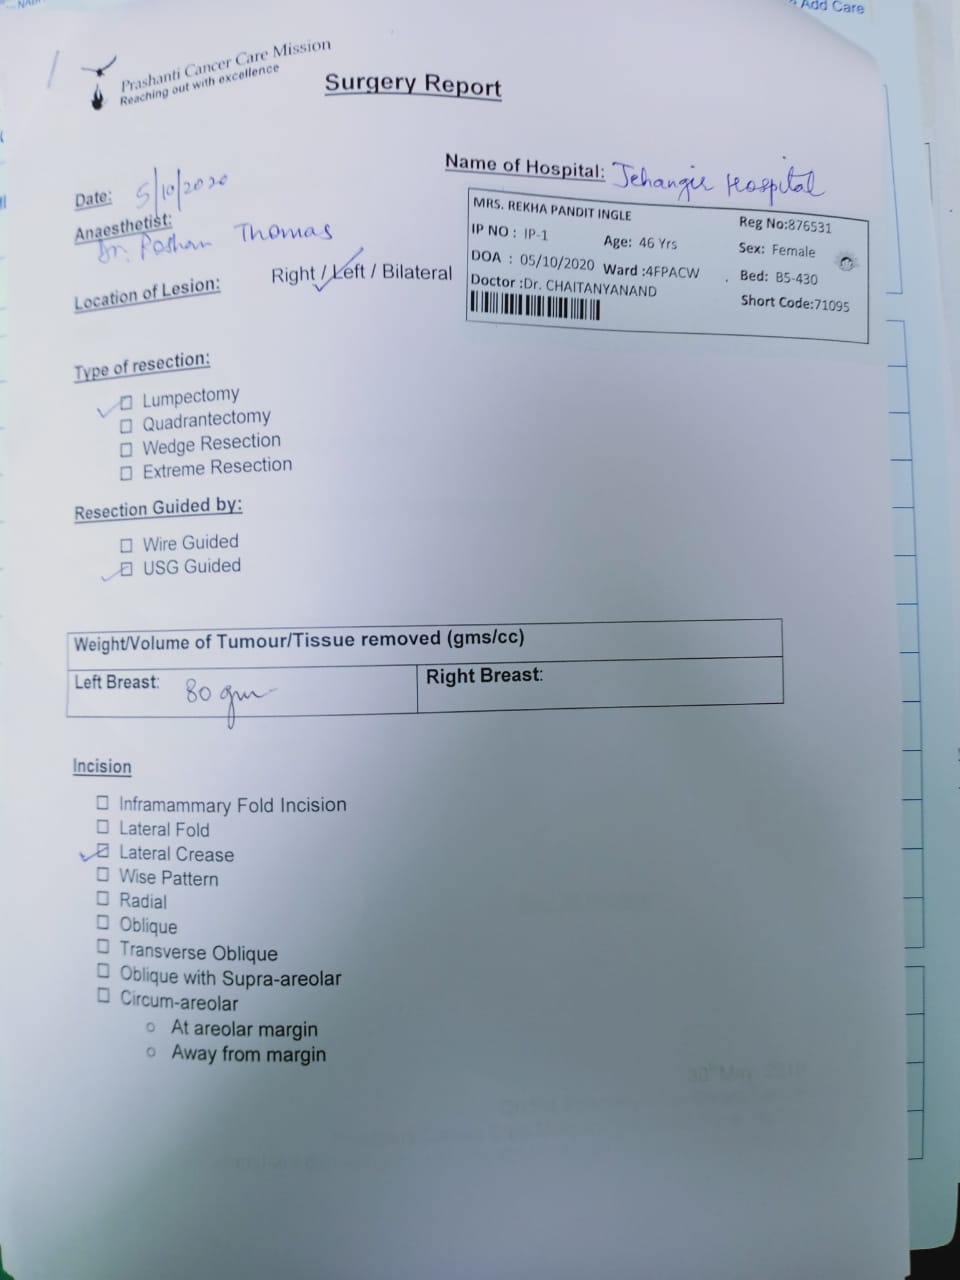 Add Care
Prashanti Cancer Care Mission
Reaching out with excellence
Surgery Report
Name of Hospital: Jehangir Hospital
Date: 5/10/2020
Anaesthetist:
Dr. Thomas
MRS. REKHA PANDIT INGLE Reg No:876531
IP NO : IP-1 Age: 46 Yrs Sex: Female
DOA : 05/10/2020 Ward :4FPACW Bed: B5-430
Doctor :Dr. CHAITANYANAND Short Code:71095
Location of Lesion: Right / Left / Bilateral
Type of resection:
Lumpectomy
Quadrantectomy
Wedge Resection
Extreme Resection
Resection Guided by:
Wire Guided
USG Guided
Weight/Volume of Tumour/Tissue removed (gms/cc)
Left Breast: 80 gm Right Breast:
Incision
Inframammary Fold Incision
Lateral Fold
Lateral Crease
Wise Pattern
Radial
Oblique
Transverse Oblique
Oblique with Supra-areolar
Circum-areolar
At areolar margin
Away from margin